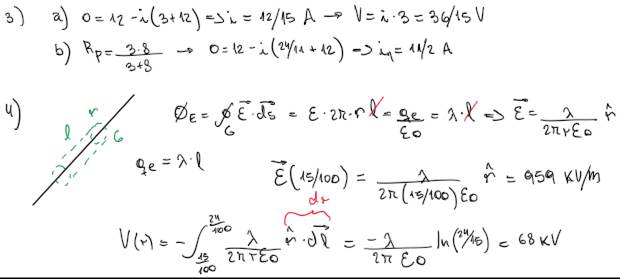 3) a) 0 = 12 - i(3+12) => i = 12/15 A → V = i·3 = 36/15 V
b) Rp = 3·8/3+8 → 0 = 12 - i(24/11 + 12) => i₁ = 11/2 A
4) l r G Φ_E = ∮_G E⃗·ds⃗ = E·2π·r l = qe/ε0 = λ·l => E⃗ = λ/2πrε0 r̂
qe = λ·l
E⃗(15/100) = λ/2π(15/100)ε0 r̂ = 959 KV/m
dr
V(r) = -∫_{15/100}^{24/100} λ/2πrε0 r̂·dl⃗ = -λ/2πε0 ln(24/15) = 68 KV